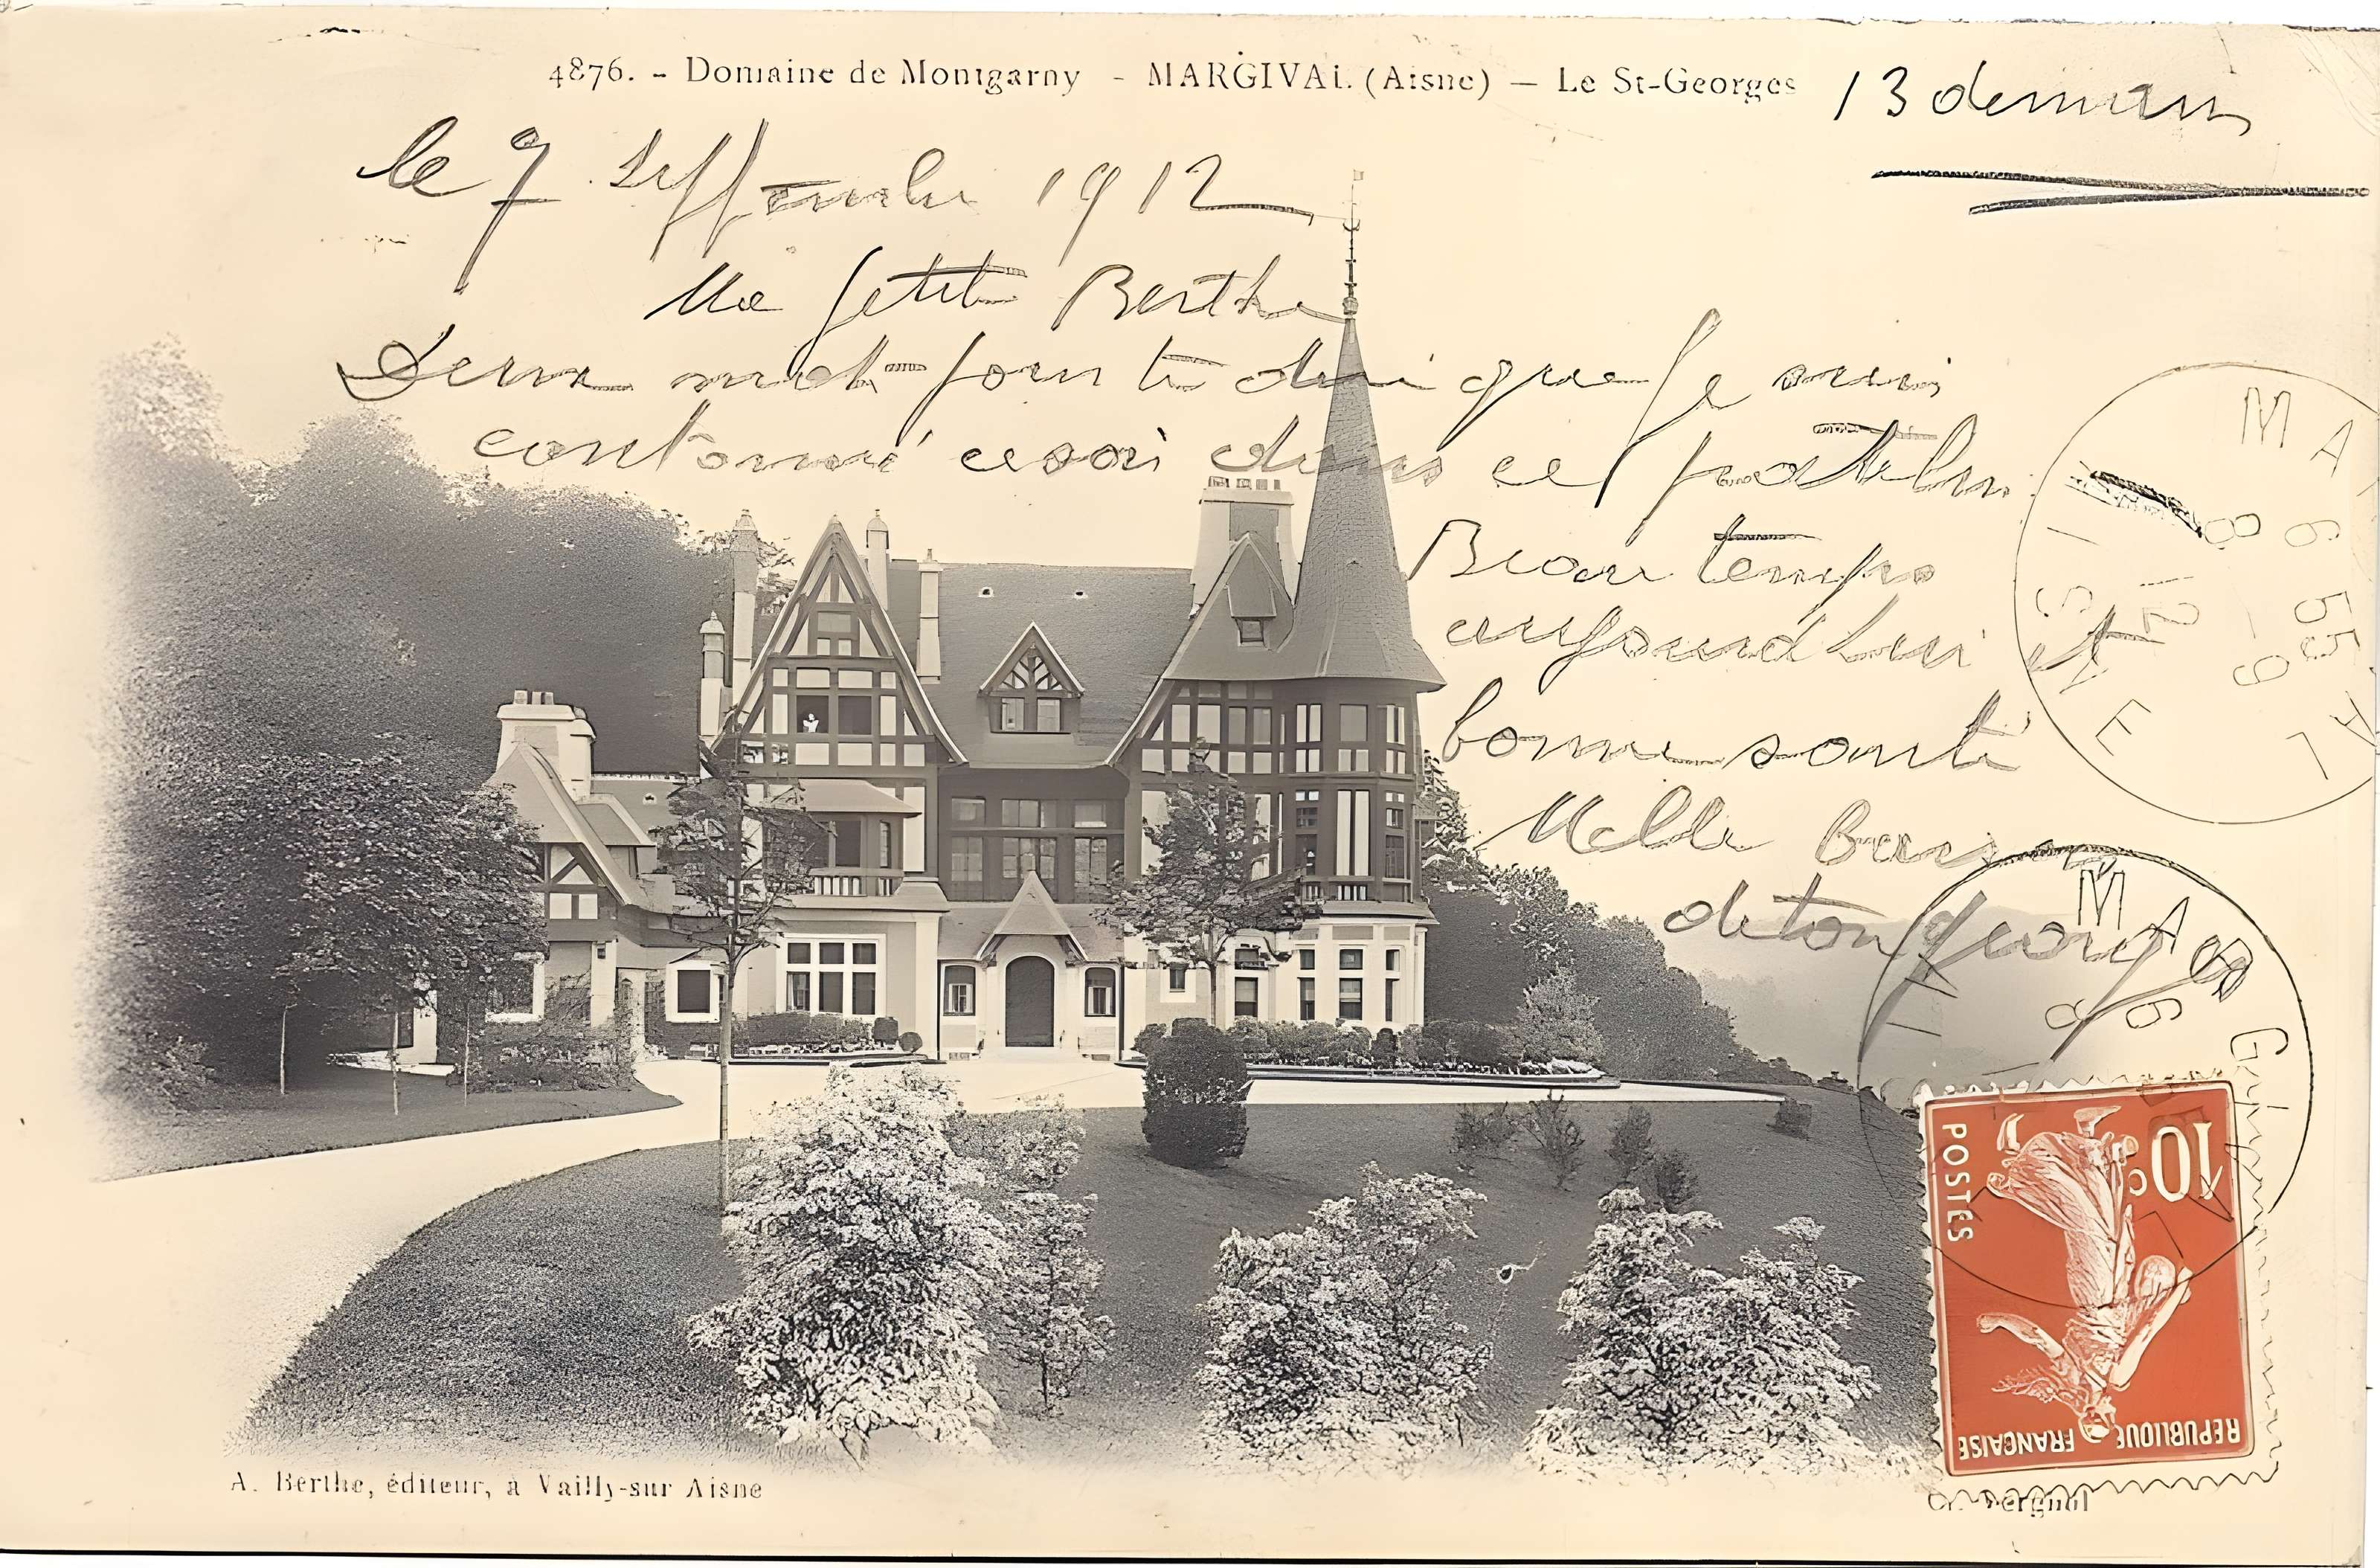 4876. - Domaine de Montgarny - MARGIVAL (Aisne) — Le St-Georges
13 demain
le 7 Septembre 1912
Ma petite Berthe
Deux mot pour te dire que je suis
cantonné ce soir dans ce patelin
Beau temps
aujourd'hui
bonne santé
Mille Baisers
de ton Georges
MA
6 55
8 - 9
12
AL
AISNE
MARG
6
8
10c
POSTES
REPUBLIQUE FRANÇAISE
A. Berthe, éditeur, à Vailly-sur Aisne